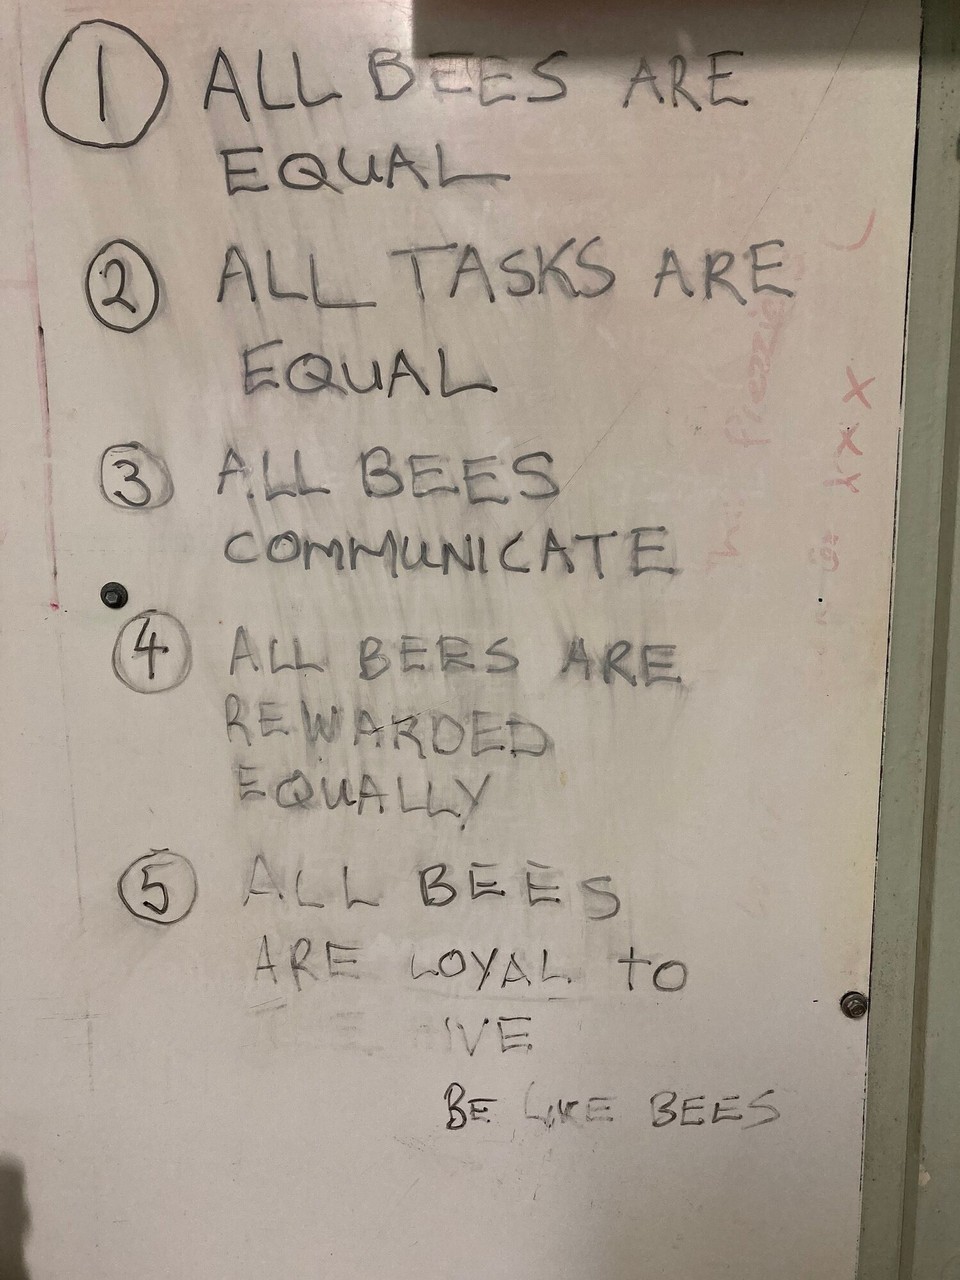 1 ALL BEES ARE
EQUAL
2 ALL TASKS ARE
EQUAL
3 ALL BEES
COMMUNICATE
4 ALL BEES ARE
REWARDED
EQUALLY
5 ALL BEES
ARE LOYAL TO
BE LIKE BEES